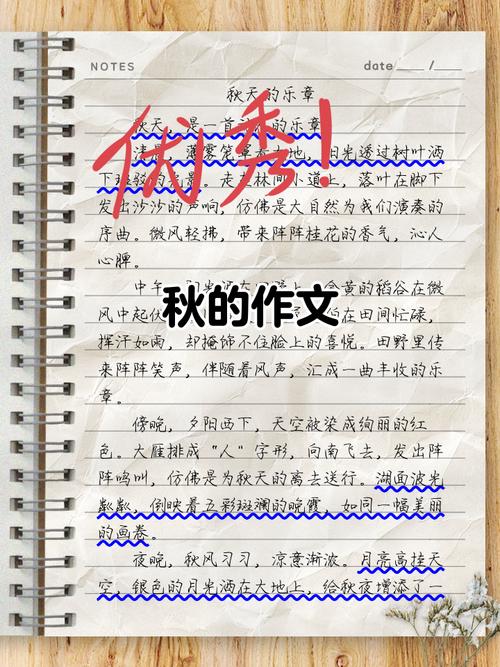 NOTES
date ____ /___
秋天的乐章
秋天，是一首
的乐章
优秀！
清晨，薄雾笼罩着大地，阳光透过树叶洒
下斑驳的光影。走在林间小道上，落叶在脚下
发出沙沙的声响，仿佛是大自然为我们演奏的
序曲。微风轻拂，带来阵阵桂花的香气，沁人
心脾。
中午，阳光洒在
上，金黄的稻谷在微
风中起伏
在田间忙碌，
秋的作文
挥汗如雨，却掩饰不住脸上的喜悦。田野里传
来阵阵笑声，伴随着风声，汇成一曲丰收的乐
章。
傍晚，夕阳西下，天空被染成绚丽的红
色。大雁排成“人”字形，向南飞去，发出阵
阵鸣叫，仿佛是为秋天的离去送行。湖面波光
粼粼，倒映着五彩斑斓的晚霞，如同一幅美丽
的画卷。
夜晚，秋风习习，凉意渐浓。月亮高挂天
空，银色的月光洒在大地上，给秋夜增添了一